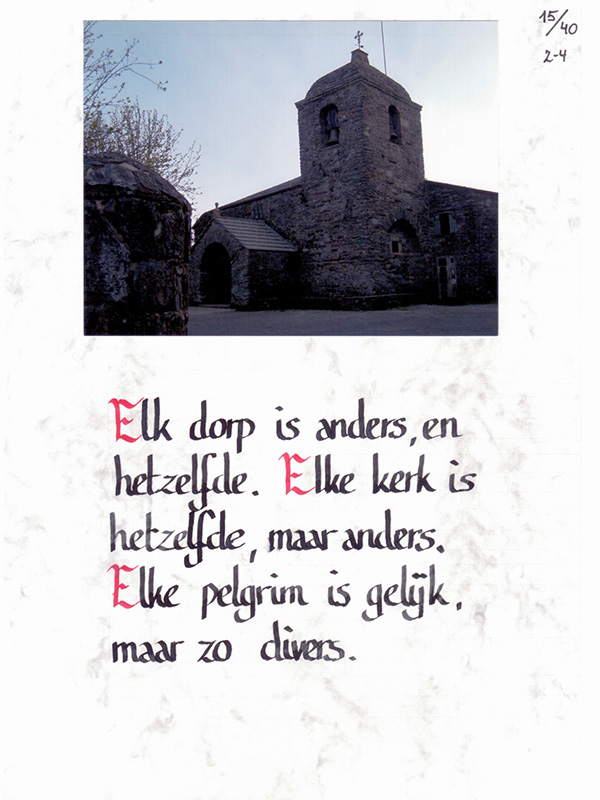 15/40
2-4
Elk dorp is anders, en
hetzelfde. Elke kerk is
hetzelfde, maar anders.
Elke pelgrim is gelijk,
maar zo divers.